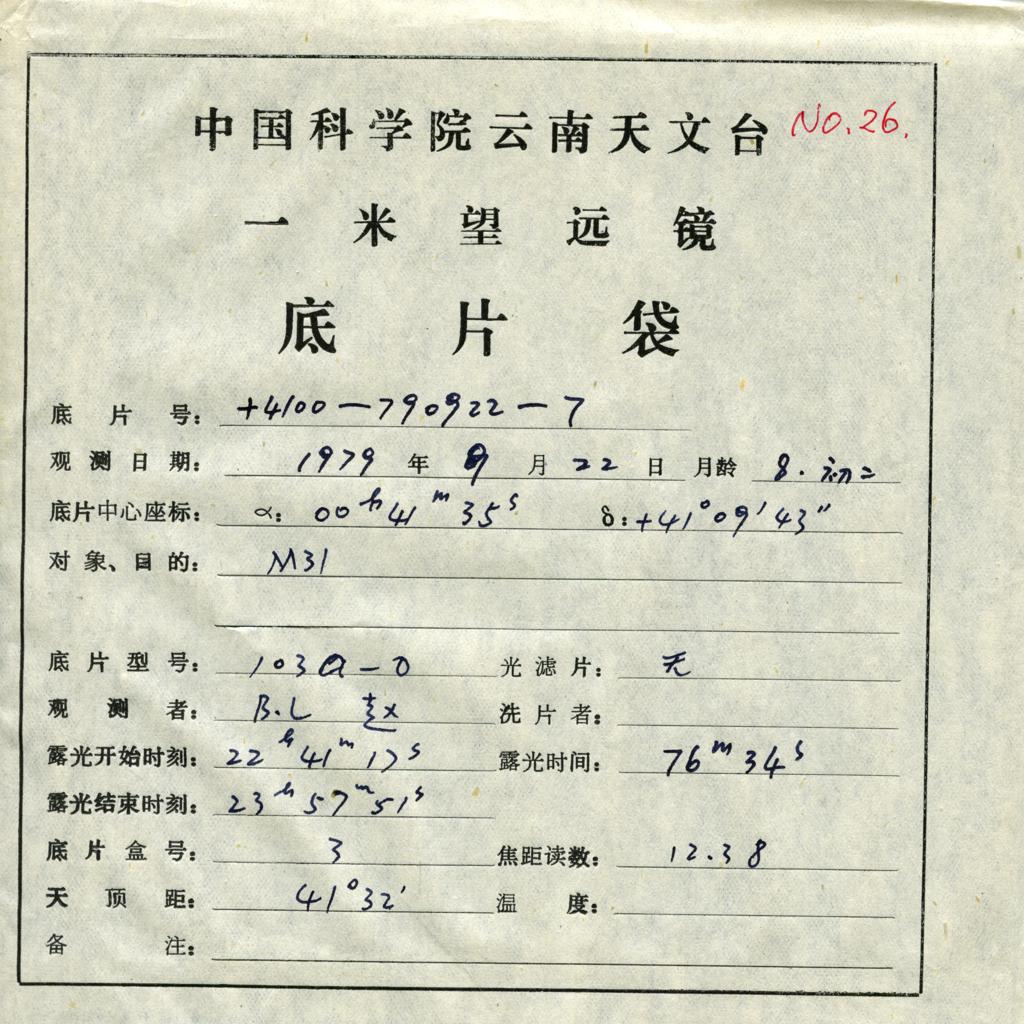 中国科学院云南天文台 No.26.
一米望远镜
底片袋
底片号: +4100-790922-7
观测日期: 1979年9月22日 月龄 8.初二
底片中心座标: α: 00h41m35s δ: +41°09′43″
对象、目的: M31
底片型号: 103a-O 光滤片: 无
观测者: B.L 赵 洗片者:
露光开始时刻: 22h41m17s 露光时间: 76m34s
露光结束时刻: 23h57m51s
底片盒号: 3 焦距读数: 12.38
天顶距: 41°32′ 温度:
备注: